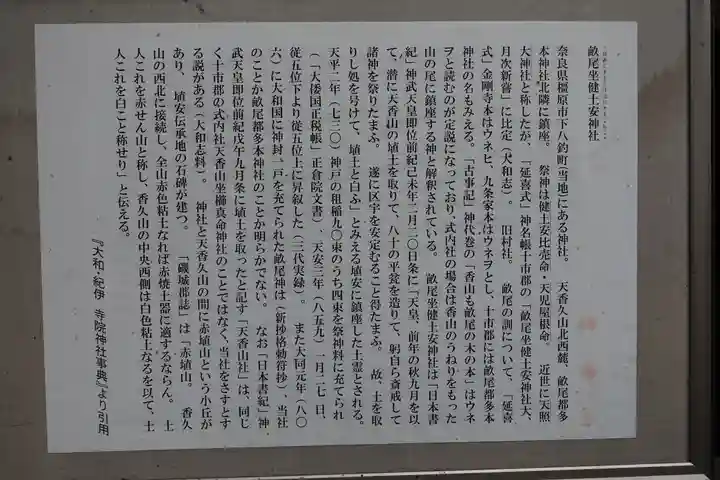 畝尾坐健土安神社
奈良県橿原市下八釣町(当地)にある神社。 天香久山北西麓、畝尾都多
本神社北隣に鎮座。 祭神は健土安比売命・天児屋根命。 近世に天照
大神社と称したが、「延喜式」神名帳十市郡の「畝尾坐健土安神社大、
月次新嘗」に比定(大和志)。 旧村社。 畝尾の訓について、「延喜
式」金剛寺本はウネヒ、九条家本はウネヲとし、十市郡には畝尾都多本
神社の名もみえる。「古事記」神代巻の「香山も畝尾の木の本」はウネ
ヲと読むのが定説になっており、式内社の場合は香山のうねりをもった
山の尾に鎮座する神と解釈されている。 畝尾坐健土安神社は「日本書
紀」神武天皇即位前紀己未年二月二〇日条に「天皇、前年の秋九月を以
て、潜に天香山の埴土を取りて、八十の平瓮を造りて、躬自ら斎戒して
諸神を祭りたまふ。 遂に区宇を安定むること得たまふ。 故、土を取
りし処を号けて、埴土と白ふ」とみえる埴安に鎮座した土霊とされる。
天平二年(七三〇)神戸の租稲九〇束のうち四束を祭神料に充てられ
(「大倭国正税帳」正倉院文書)、天安三年(八五九)一月二七日、
従五位下より従五位上に昇叙した(三代実録)。 また大同元年(八〇
六)に大和国に神封一戸を充てられた畝尾神は(新抄格勅符抄)、当社
のことか畝尾都多本神社のことか明らかでない。 なお「日本書紀」神
武天皇即位前紀戊午九月条に埴土を取ったと記す「天香山社」は、同じ
く十市郡の式内社天香山坐櫛真命神社のことではなく、当社をさすとす
る説がある(大和志料)。 神社と天香久山の間に赤埴山という小丘が
あり、埴安伝承地の石碑が建つ。 「磯城郡誌」は「赤埴山。 香久
山の西北に接続し、全山赤色粘土なれば赤焼土器に適するならん。 土
人これを赤せん山と称し、香久山の中央西側は白色粘土なるを以て、土
人これを白こと称せり」と伝える。
『大和・紀伊 寺院神社事典』より引用